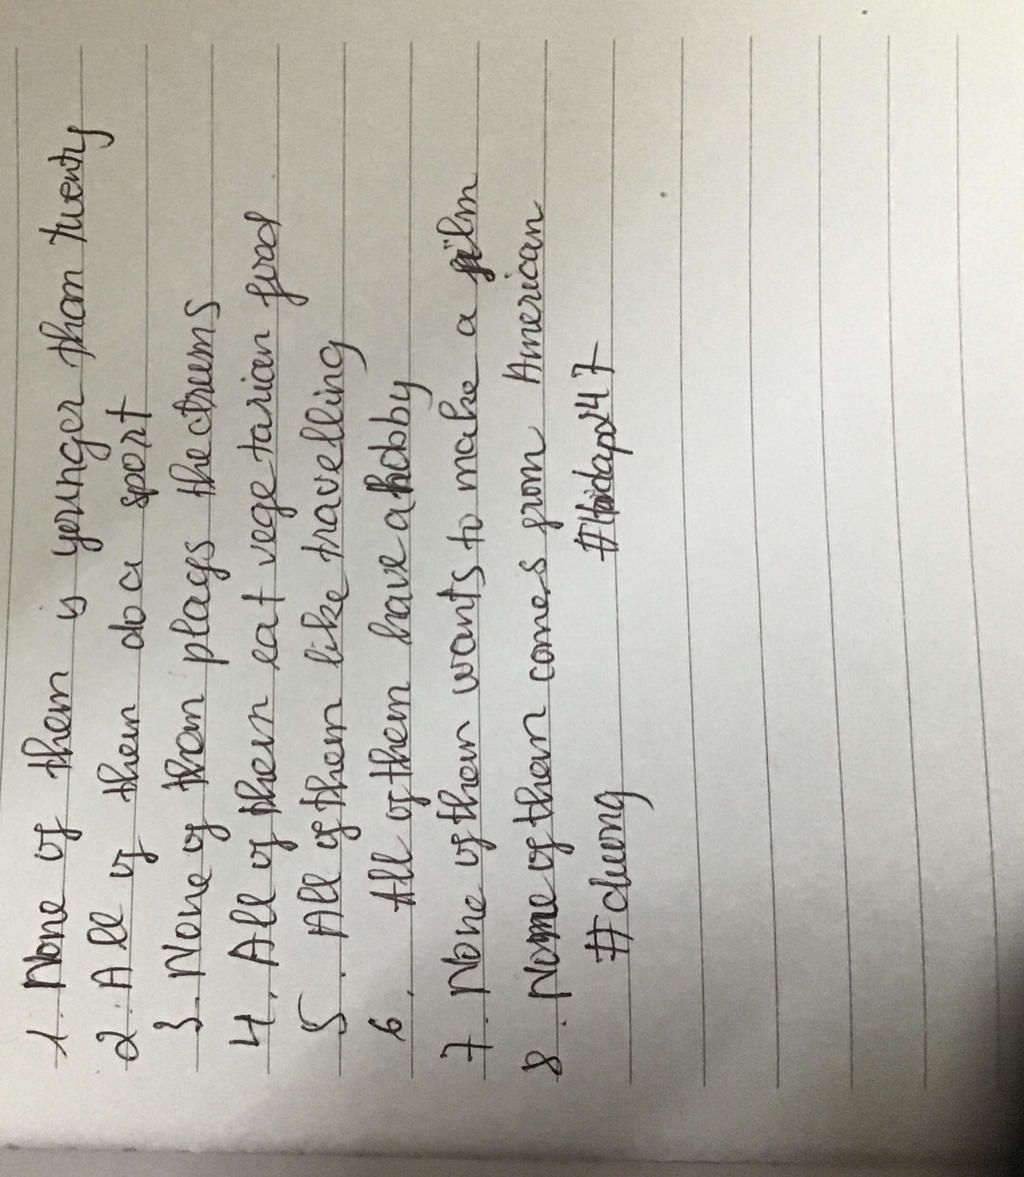 1. None of them is younger than twenty
2. All of them do a sport
3. None of them plays the drums
4. All of them eat vegetarian food
5. All of them like travelling
6. All of them have a hobby
7. None of them wants to make a film
8. None of them comes from American
#cheong #Hoidap247